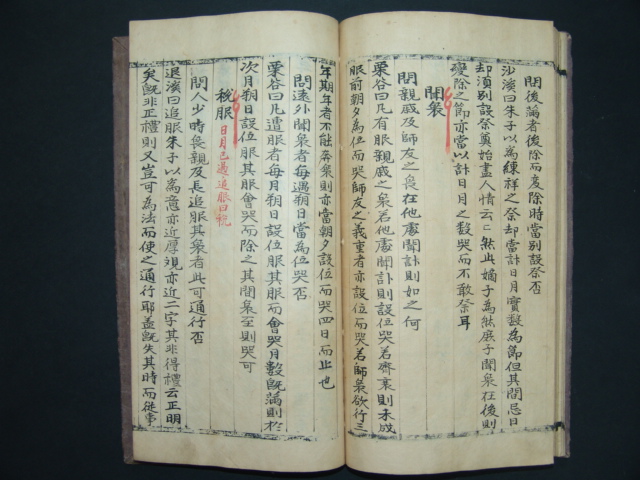 問後滿者後除而變除時當別設祭否
沙溪曰朱子以為練祥之祭却當計日月實數為節但其間忌日
却須別設祭奠始盡人情云云然此嫡子為然庶子聞喪在後則
變除之節亦當以計日月之數哭而不敢祭耳
聞喪
問親戚及師友之喪在他處聞訃則如之何
栗谷曰凡有服親戚之喪若他處聞訃則設位而哭若齊衰則未成
服前朝夕為位而哭師友之義重者亦設位而哭若師喪欲行三
年期年者不能奔喪則亦當朝夕設位而哭四日而止也
問遠外聞喪者每遇朔日當為位哭否
栗谷曰凡遭服者每月朔日設位服其服而會哭月數旣滿則於
次月朔日設位服其服會哭而除之其間哀至則哭可
稅服 日月已過追服曰稅
問人少時喪親及長追服其喪者此可通行否
退溪曰追服朱子以為意亦近厚觀亦近二字其非得禮云正明
矣旣非正禮則又豈可為法而使之通行耶盖旣失其時而從事